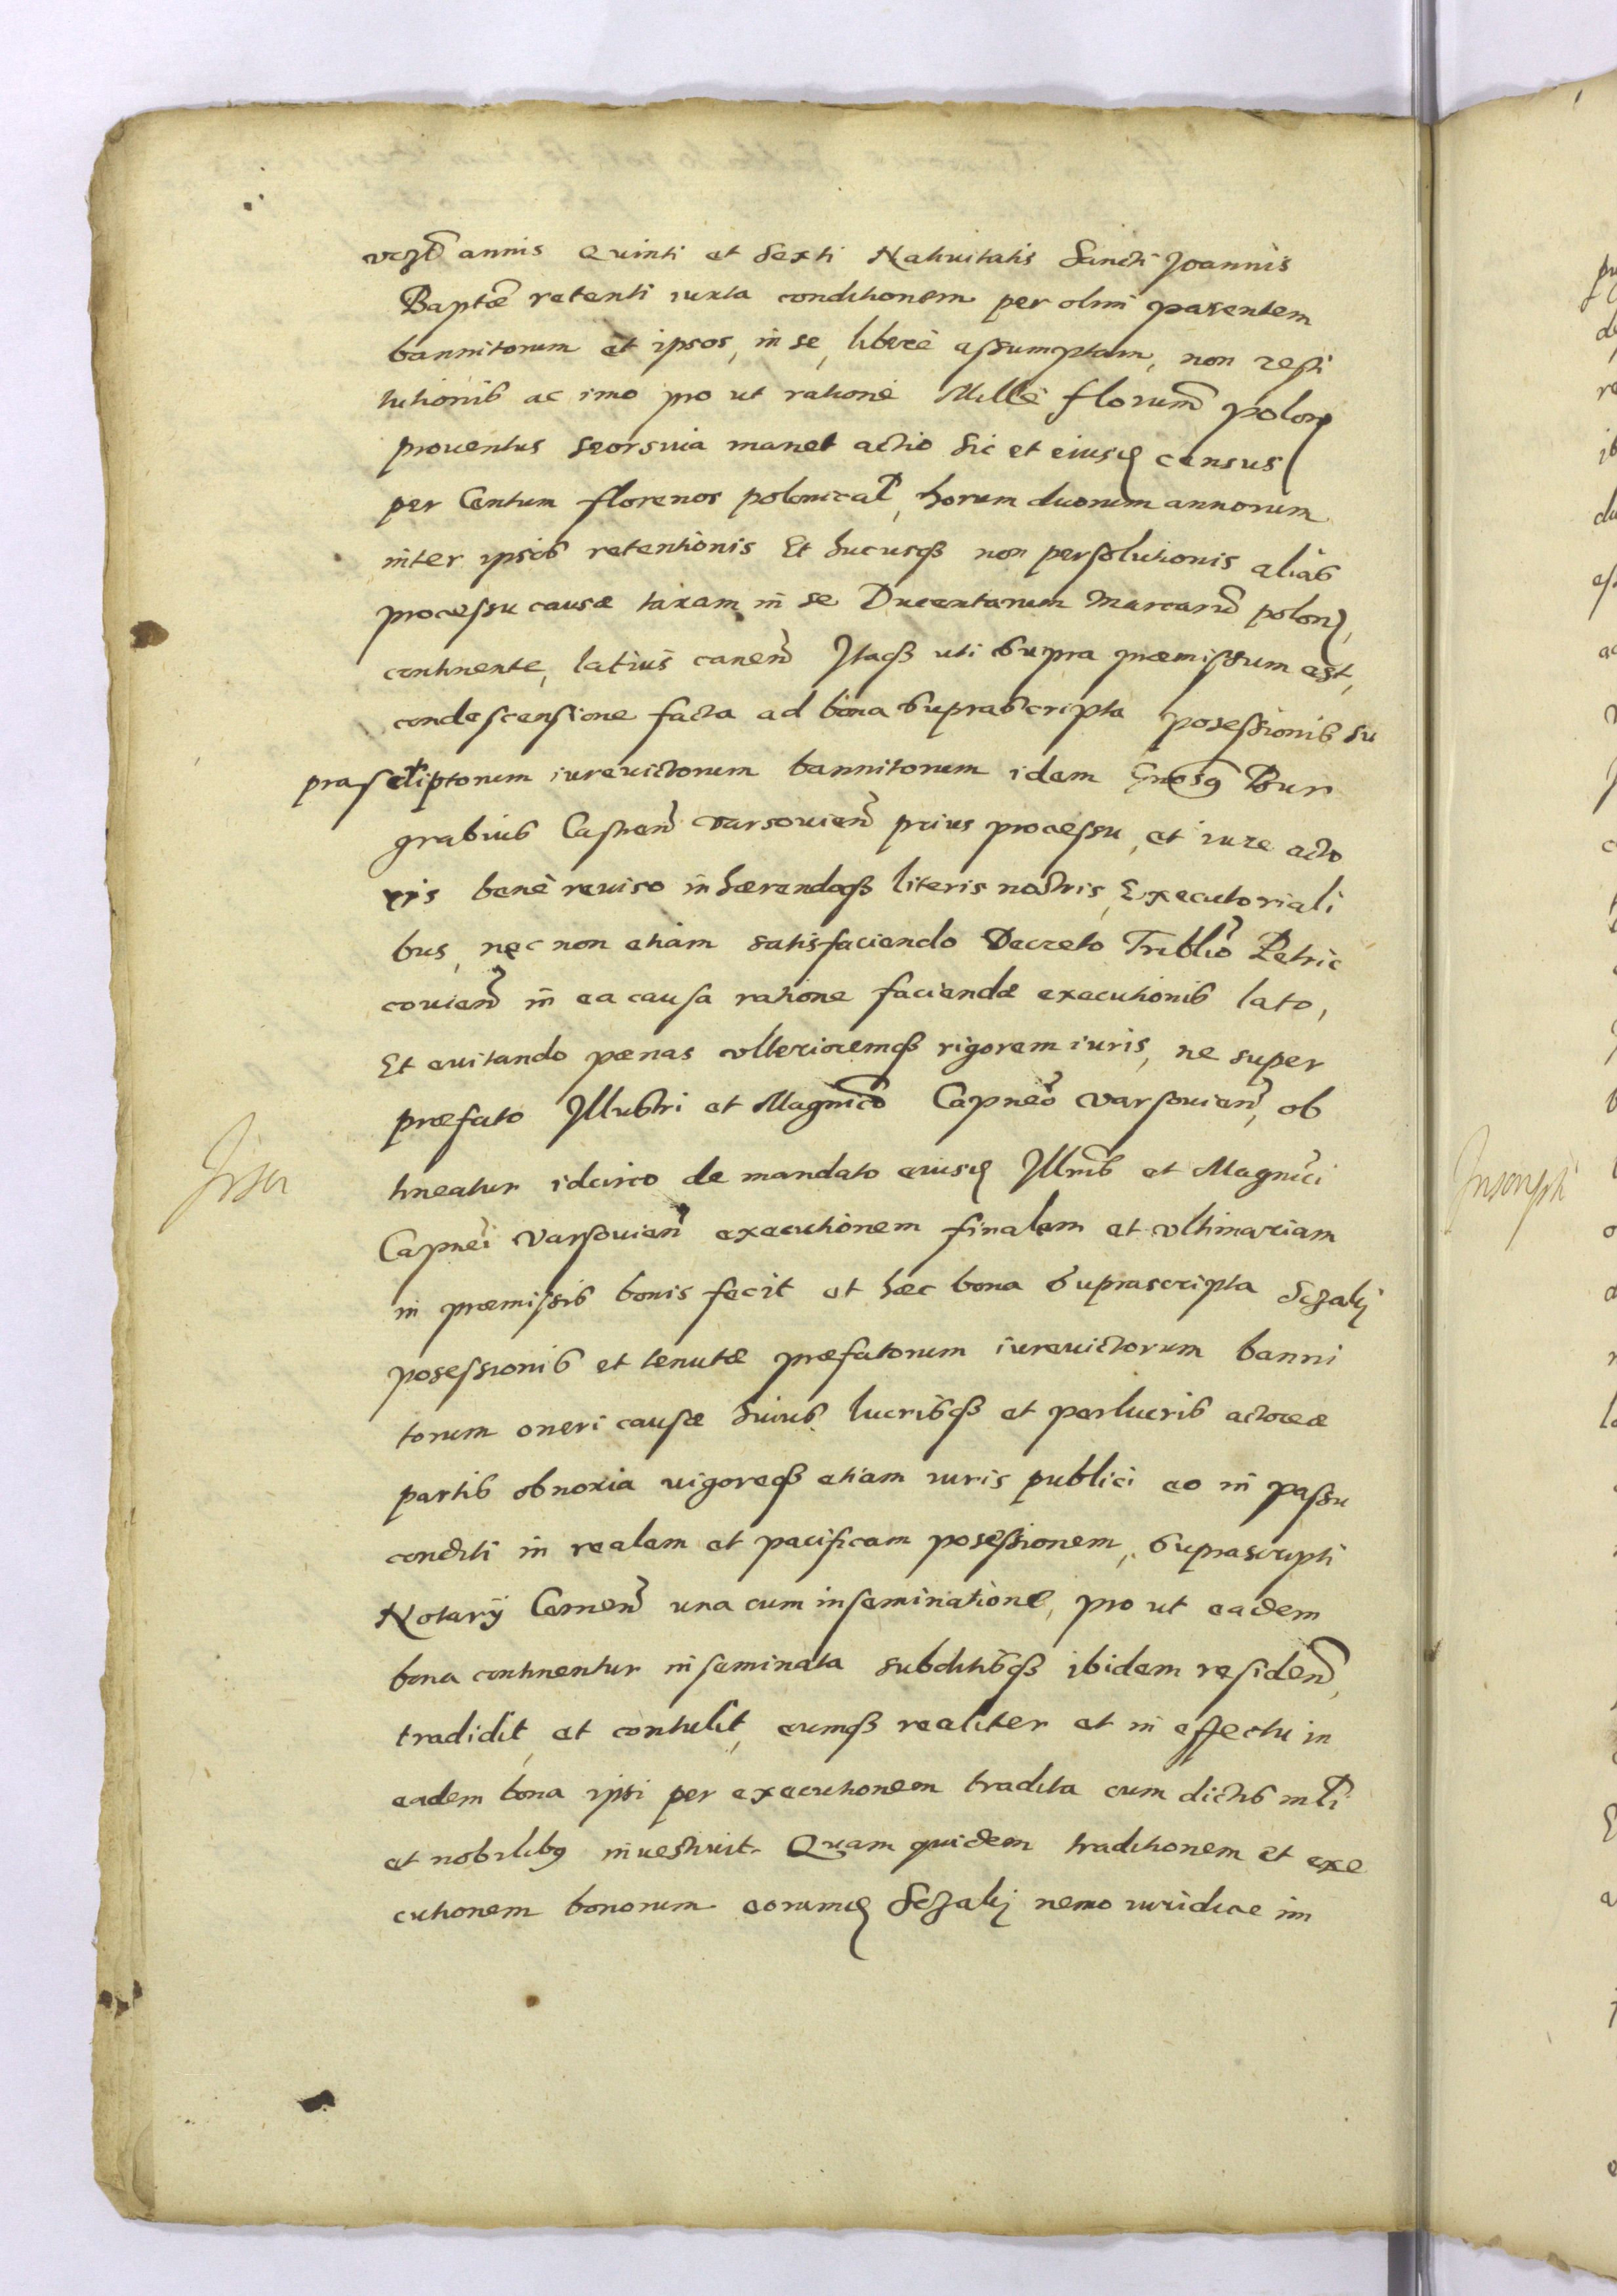 annis quinti et Sexti Natiuitatis Sancti Joannis
Baptæ retenti iuxta conditionem per olim parentem
bannitorum et ipsos, in se, liberè assumptam, non resti
tutionis ac imo pro ut ratione Mille florum̃ polon
prouentus seorsiua manet actio sic et eiusd census
per Centum florenos polonical, horum duorum annorum
inter ipsos retentionis Et hucusq3 non persolutionis alias
processu causæ taxam in se Ducentarum Marcarũ polon,
continente, latius canen̄ Itaq3 uti supra præmissum est,
condescensione facta ad bona suprascripta posessionis su
prascriptorum iureuictorum bannitorum idem Gnosg Bur
grabius Castren̄ varsouien̄ prius processu, et iure acto
ris benè reuiso inhærendoq3 literis nostris, Executoriali
bus, nec non etiam satisfaciendo Decreto Triblio Petric
couien̄ in ea causa ratione faciendæ executionis lato,
Et euitando pœnas vlterioremq3 rigorem iuris, ne super
præfato Illustri et Magnico Capneo varsouien̄, ob
tineatur idcirco de mandato eiusd Illris et Magnici
Capnei varsouien̄ executionem finalem et vltimariam
in præmissis bonis fecit et hæc bona suprascripta Sczaki
posessionis et tenutæ præfatorum iureuictorum banni
torum oneri causæ huius lucrisq3 et perlucris actoreæ
partis obnoxia uigoreq3 etiam iuris publici eo in passu
conditi in realem et pacificam posessionem, suprascripti
Notarij Camen̄ una cum inseminatione, pro ut eadem
bona continentur inseminata subditisq3 ibidem residen̄,
tradidit, et contulit, eumq3 realiter et in effectu in
eadem bona ipsi per executionem tradita cum dictis mli
et nobilibg inuestiuit. Quam quidem traditionem et exe
cutionem bonorum eorumd nemo iuridice im